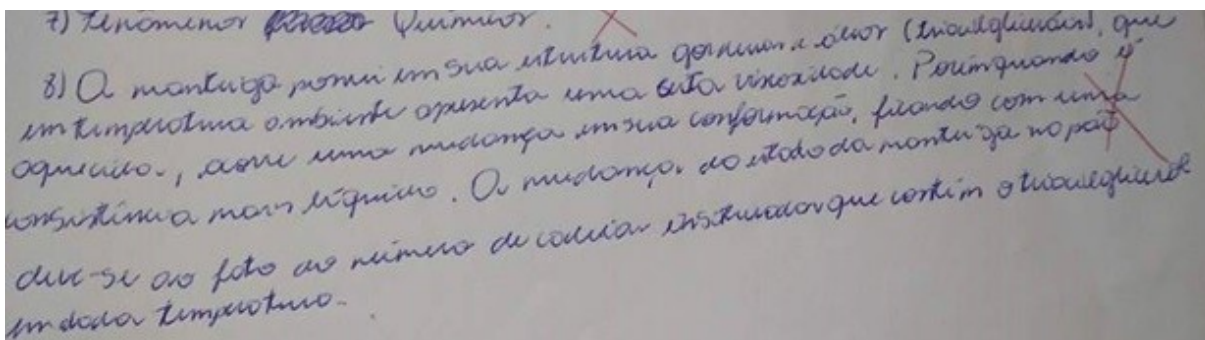 7) Fenômenos Químicos.
8) A manteiga possui em sua estrutura gorduras e óleos (triacilgliceróis), que
em temperatura ambiente apresenta uma certa viscosidade. Porém quando é
aquecido, ocorre uma mudança em sua conformação, ficando com uma
consistência mais líquida. A mudança do estado da manteiga no pão
deve-se ao fato do número de cadeias insaturadas que contém o triacilglicerol
em dada temperatura.